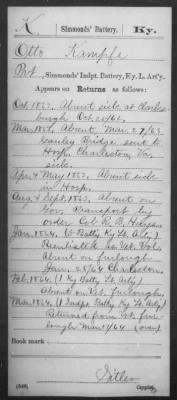 K, Simmonds' Battery. Ky.
Otto Kampfe
Pvt, Simmonds' Indpt. Battery, Ky. L. Art'y.
Appears on Returns as follows:
Oct. 1862, Absent sick at Charles-
burgh Oct. 25/62.
Mar. 1863, Absent, Mar. 27/63
Gauley Bridge sent to
Hosp. Charleston, Va
sick.
Apr. & May 1863, Absent sick
in Hosp.
Aug & Sept. 1863, Absent on
Gov. Transport by
order Col. R. B.
Jan. 1864, (6 Batty Ky Lt. Arty)
Reenlisted as Vet. Vols
Absent on furlough
Jan. 28/64 Charleston
Feb. 1864, (1 Ky Batty Lt. Arty)
Absent on Vet. furlough
Mar. 1864, (1 Indpt. Batty Ky Lt Arty)
Returned from Vet. fur-
lough Mar /64 (over
Book mark:
(546) Sitler
Copyist.